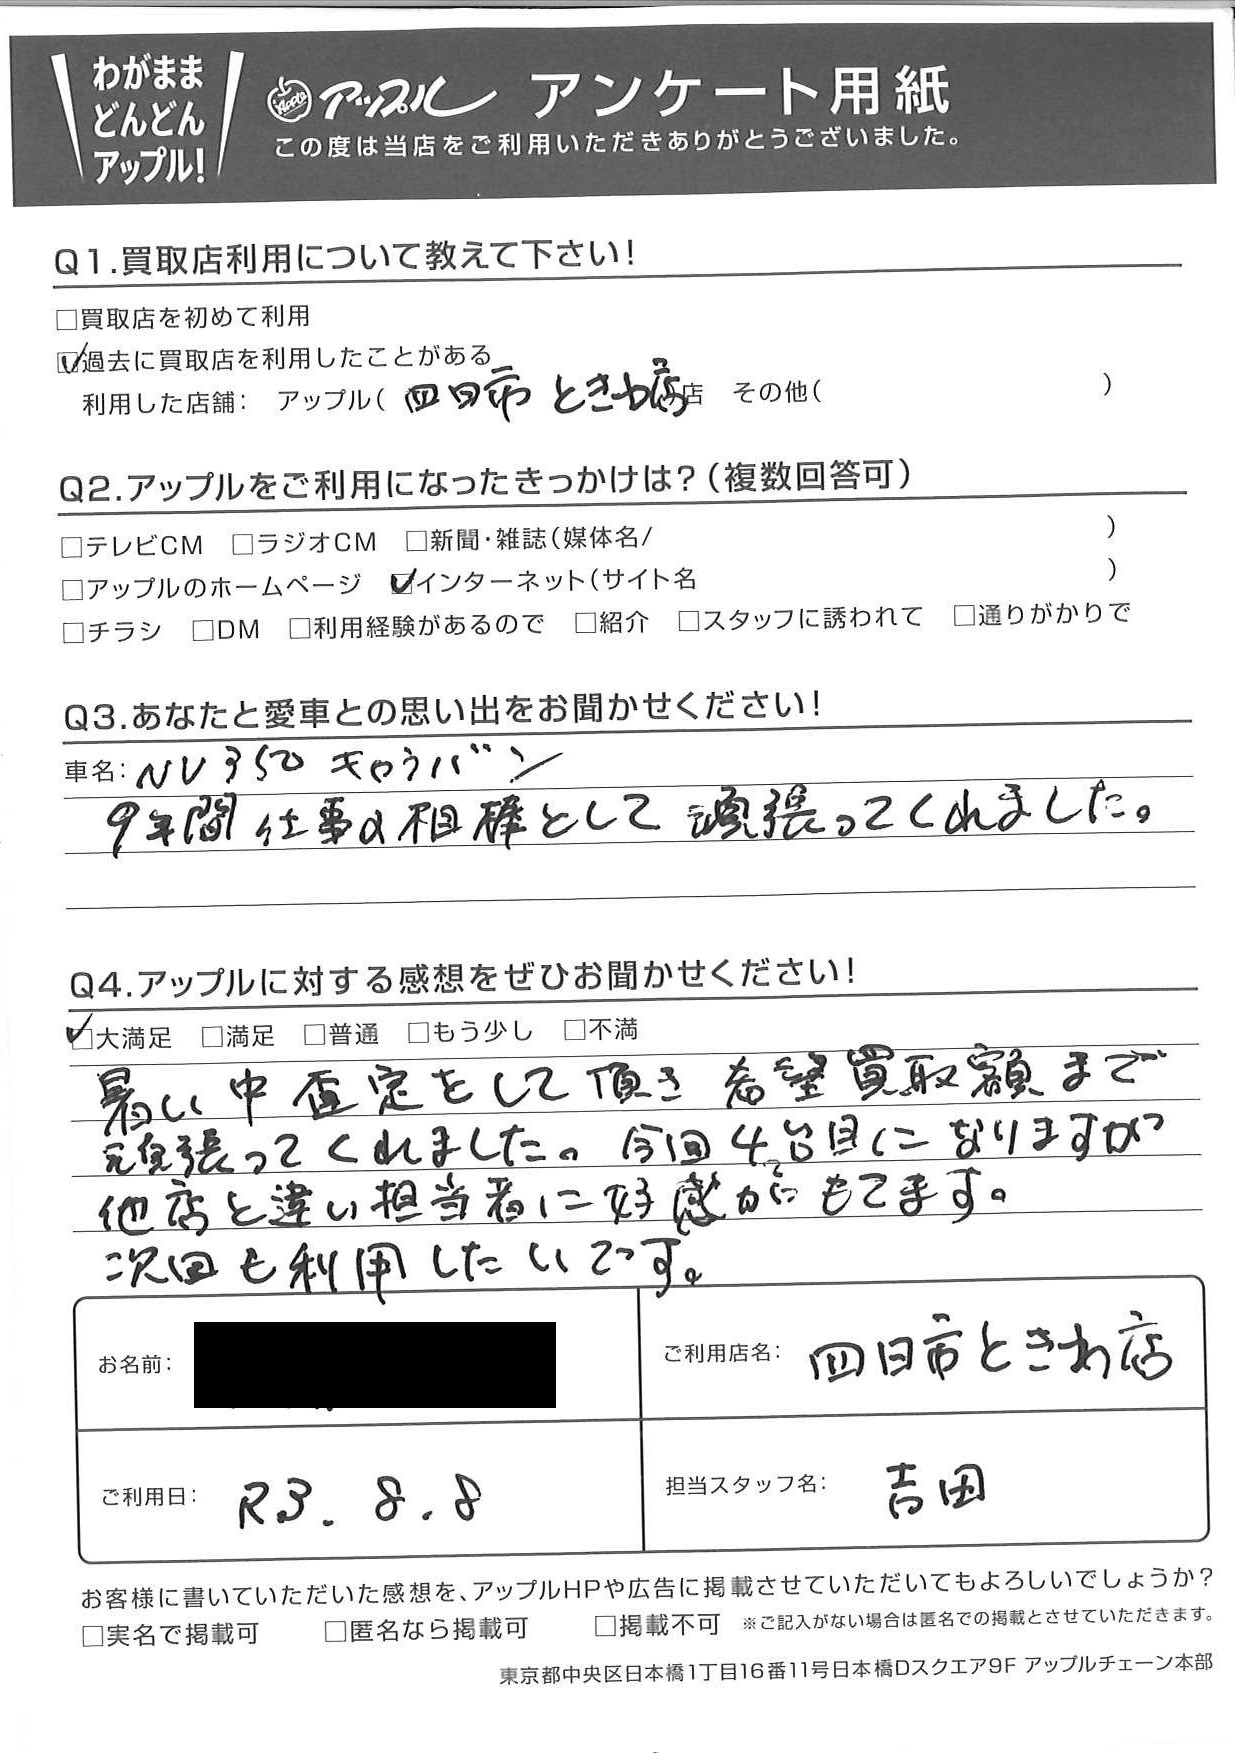 わがまま
どんどん
アップル!
Apple アップル アンケート用紙
この度は当店をご利用いただきありがとうございました。
Q1.買取店利用について教えて下さい!
□買取店を初めて利用
☑過去に買取店を利用したことがある
利用した店舗: アップル( 四日市 ときわ店 店 その他( )
Q2.アップルをご利用になったきっかけは?(複数回答可)
□テレビCM □ラジオCM □新聞・雑誌(媒体名/ )
□アップルのホームページ ☑インターネット(サイト名 )
□チラシ □DM □利用経験があるので □紹介 □スタッフに誘われて □通りがかりで
Q3.あなたと愛車との思い出をお聞かせください!
車名: NV350 キャラバン
9年間 仕事の相棒として 頑張ってくれました。
Q4.アップルに対する感想をぜひお聞かせください!
☑大満足 □満足 □普通 □もう少し □不満
暑い中 査定をして頂き 希望買取額まで
頑張ってくれました。今回4台目になりますが
他店と違い担当者に好感がもてます。
次回も利用したいです。
お名前:
ご利用店名: 四日市ときわ店
ご利用日: R3.8.8
担当スタッフ名: 吉田
お客様に書いていただいた感想を、アップルHPや広告に掲載させていただいてもよろしいでしょうか?
□実名で掲載可 □匿名なら掲載可 □掲載不可 ※ご記入がない場合は匿名での掲載とさせていただきます。
東京都中央区日本橋1丁目16番11号日本橋Dスクエア9F アップルチェーン本部